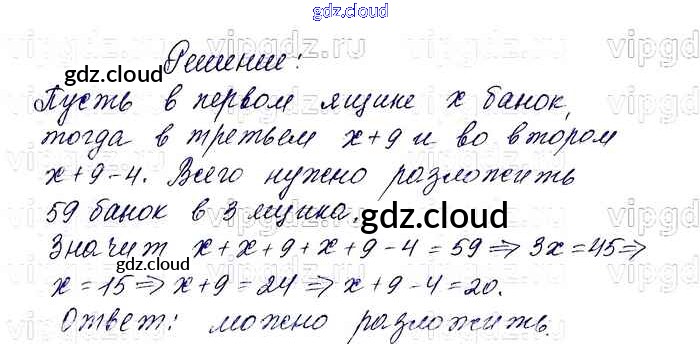 gdz.cloud
Решение:
gdz.cloud
Пусть в первом ящике x банок,
тогда в третьем x+9 и во втором
x+9-4. Всего нужно разложить
59 банок в 3 ящика.
gdz.cloud
Значит x+x+9+x+9-4=59⇒3x=45⇒
gdz.cloud
x=15⇒x+9=24⇒x+9-4=20.
Ответ: можно разложить.